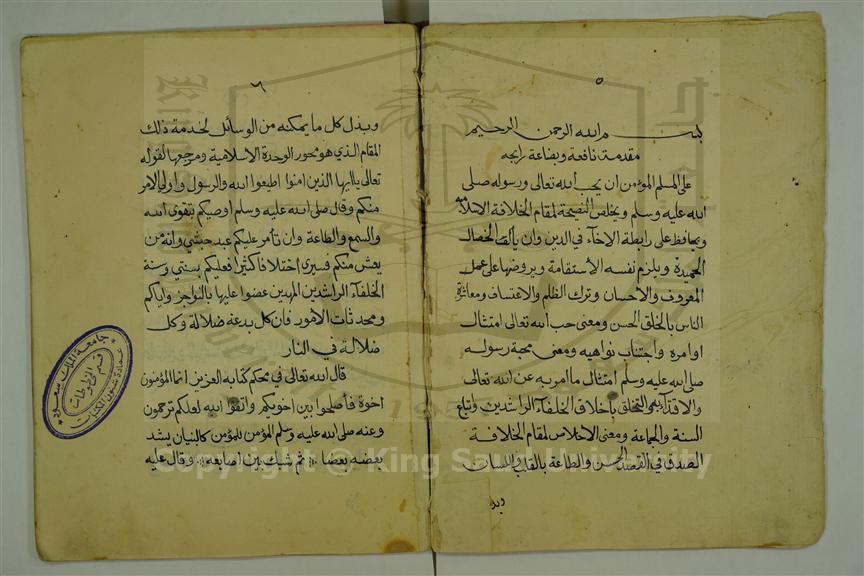 ٥
بسم الله الرحمن الرحيم
مقدمة نافعة وبضاعة رابحه
على المسلم المؤمن ان يحب الله تعالى ورسوله صلى
الله عليه وسلم ويخلص النصيحة لمقام الخلافة الاسلاميه
ويحافظ على رابطة الاخآء في الدين وان يألف الخصال
الحميدة ويلزم نفسه الأستقامة ويروضها على عمل
المعروف والاحسان وترك الظلم والاعتساف ومعاشرة
الناس بالخلق الحسن ومعنى حب الله تعالى امتثال
اوامره واجتناب نواهيه ومعنى محبة رسوله
صلى الله عليه وسلم امتثال ما أمر به عن الله تعالى
والاقتدآء به والتخلق بأخلاق الخلفآء الراشدين واتباع
السنة والجماعة ومعنى الاخلاص لمقام الخلافة
الصدق في القصد الحسن والطاعة بالقلب واللسان
وبذل
٦
وبذل كل ما يمكنه من الوسائل لخدمة ذلك
المقام الذي هو محور الوحدة الاسلامية ومرجعها لقوله
تعالى ياايها الذين امنوا اطيعوا الله والرسول واولى الامر
منكم وقال صلى الله عليه وسلم اوصيكم بتقوى الله
والسمع والطاعة وان تأمر عليكم عبد حبشي وانه من
يعش منكم فسيرى اختلافا كثيرا فعليكم بسنتي وسنة
الخلفآء الراشدين المهدين عضوا عليها بالنواجز واياكم
ومحدثات الأمور فان كل بدعة ضلالة وكل
ضلالة في النار
قال الله تعالى في محكم كتابه العزيز انما المؤمنون
اخوة فأصلحوا بين اخويكم واتقوا الله لعلكم ترحمون
وعنه صلى الله عليه وسلم المؤمن للمؤمن كالبنيان يشد
بعضه بعضا ثم شبك بين اصابعه وقال عليه
جامعة الملك سعود
عمادة شئون المكتبات
قسم المخطوطات
Copyright © King Saud University
1957